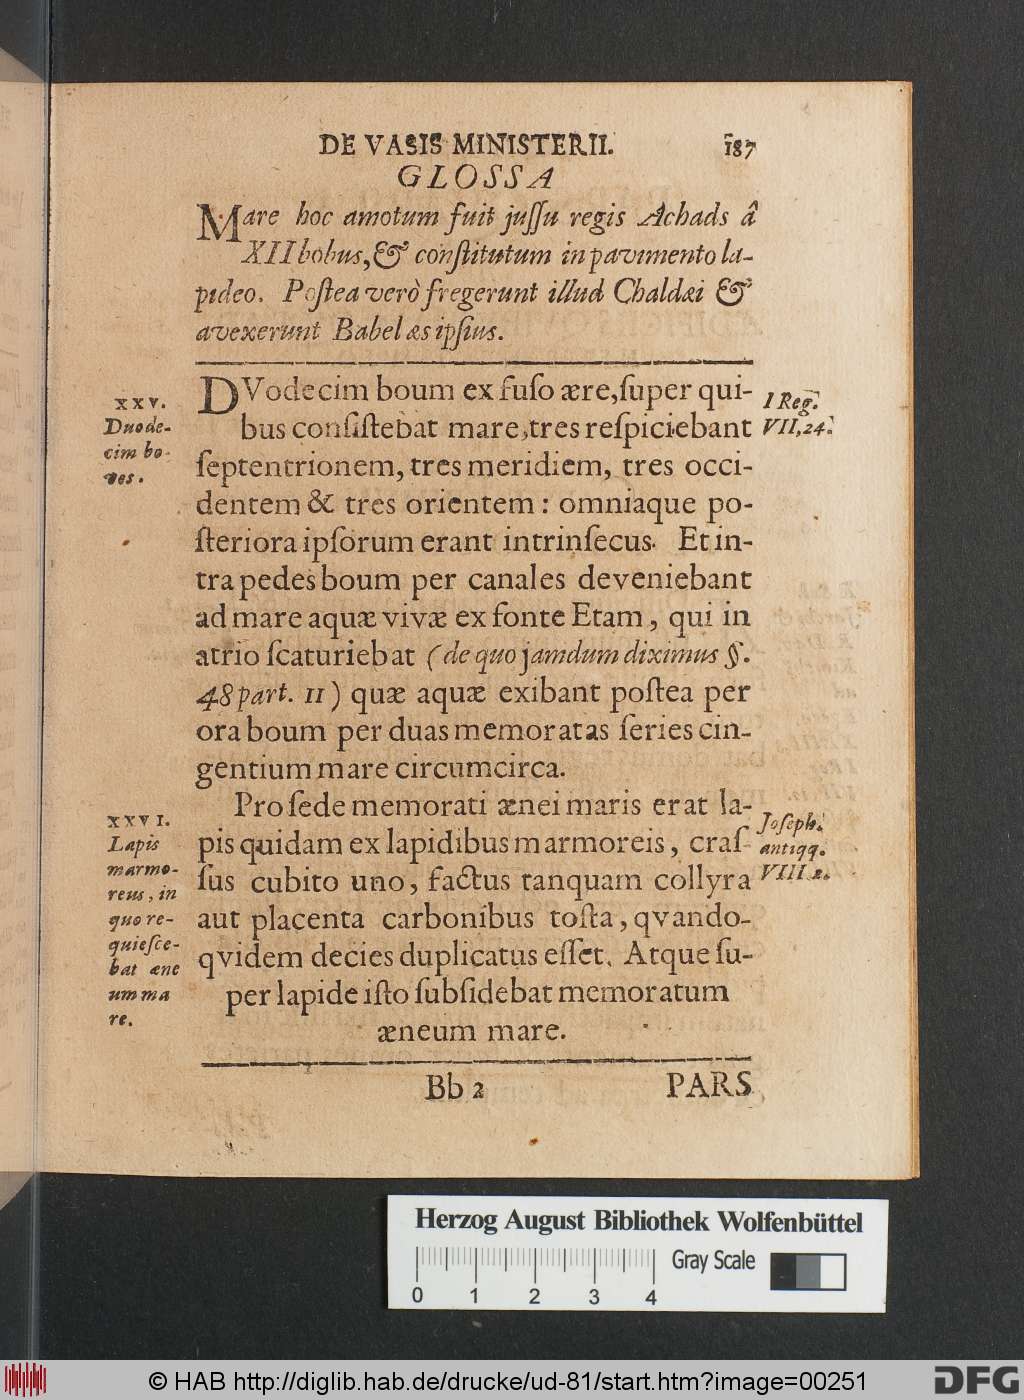 DE VASIS MINISTERII. 187
GLOSSA
Mare hoc amotum fuit juſſu regis Achads â
XII bobus, & conſtitutum in pavimento la-
pideo. Poſtea verò fregerunt illud Chaldæi &
avexerunt Babel æs ipſius.
XXV.
Duode-
cim bo-
ves.
DVodecim boum ex fuſo ære, ſuper qui-
bus conſiſtebat mare, tres reſpiciebant
ſeptentrionem, tres meridiem, tres occi-
dentem & tres orientem: omniaque po-
ſteriora ipſorum erant intrinſecus. Et in-
tra pedes boum per canales deveniebant
ad mare aquæ vivæ ex fonte Etam, qui in
atrio ſcaturiebat (de quo jamdum diximus §.
48 part. II) quæ aquæ exibant poſtea per
ora boum per duas memoratas ſeries cin-
gentium mare circumcirca.
I Reg.
VII, 24.
XXVI.
Lapis
marmo-
reus, in
quo re-
quieſce-
bat æne
um ma
re.
Pro ſede memorati ænei maris erat la-
pis quidam ex lapidibus marmoreis, craſ-
ſus cubito uno, factus tanquam collyra
aut placenta carbonibus toſta, qvando-
qvidem decies duplicatus eſſet. Atque ſu-
per lapide iſto ſubſidebat memoratum
æneum mare.
Joſeph.
antiqq.
VIII 2.
Bb 2 PARS
Herzog August Bibliothek Wolfenbüttel
Gray Scale
0 1 2 3 4
© HAB http://diglib.hab.de/drucke/ud-81/start.htm?image=00251
DFG